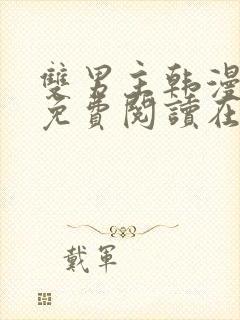 雙男主韩漫
免費閱讀在
戴軍